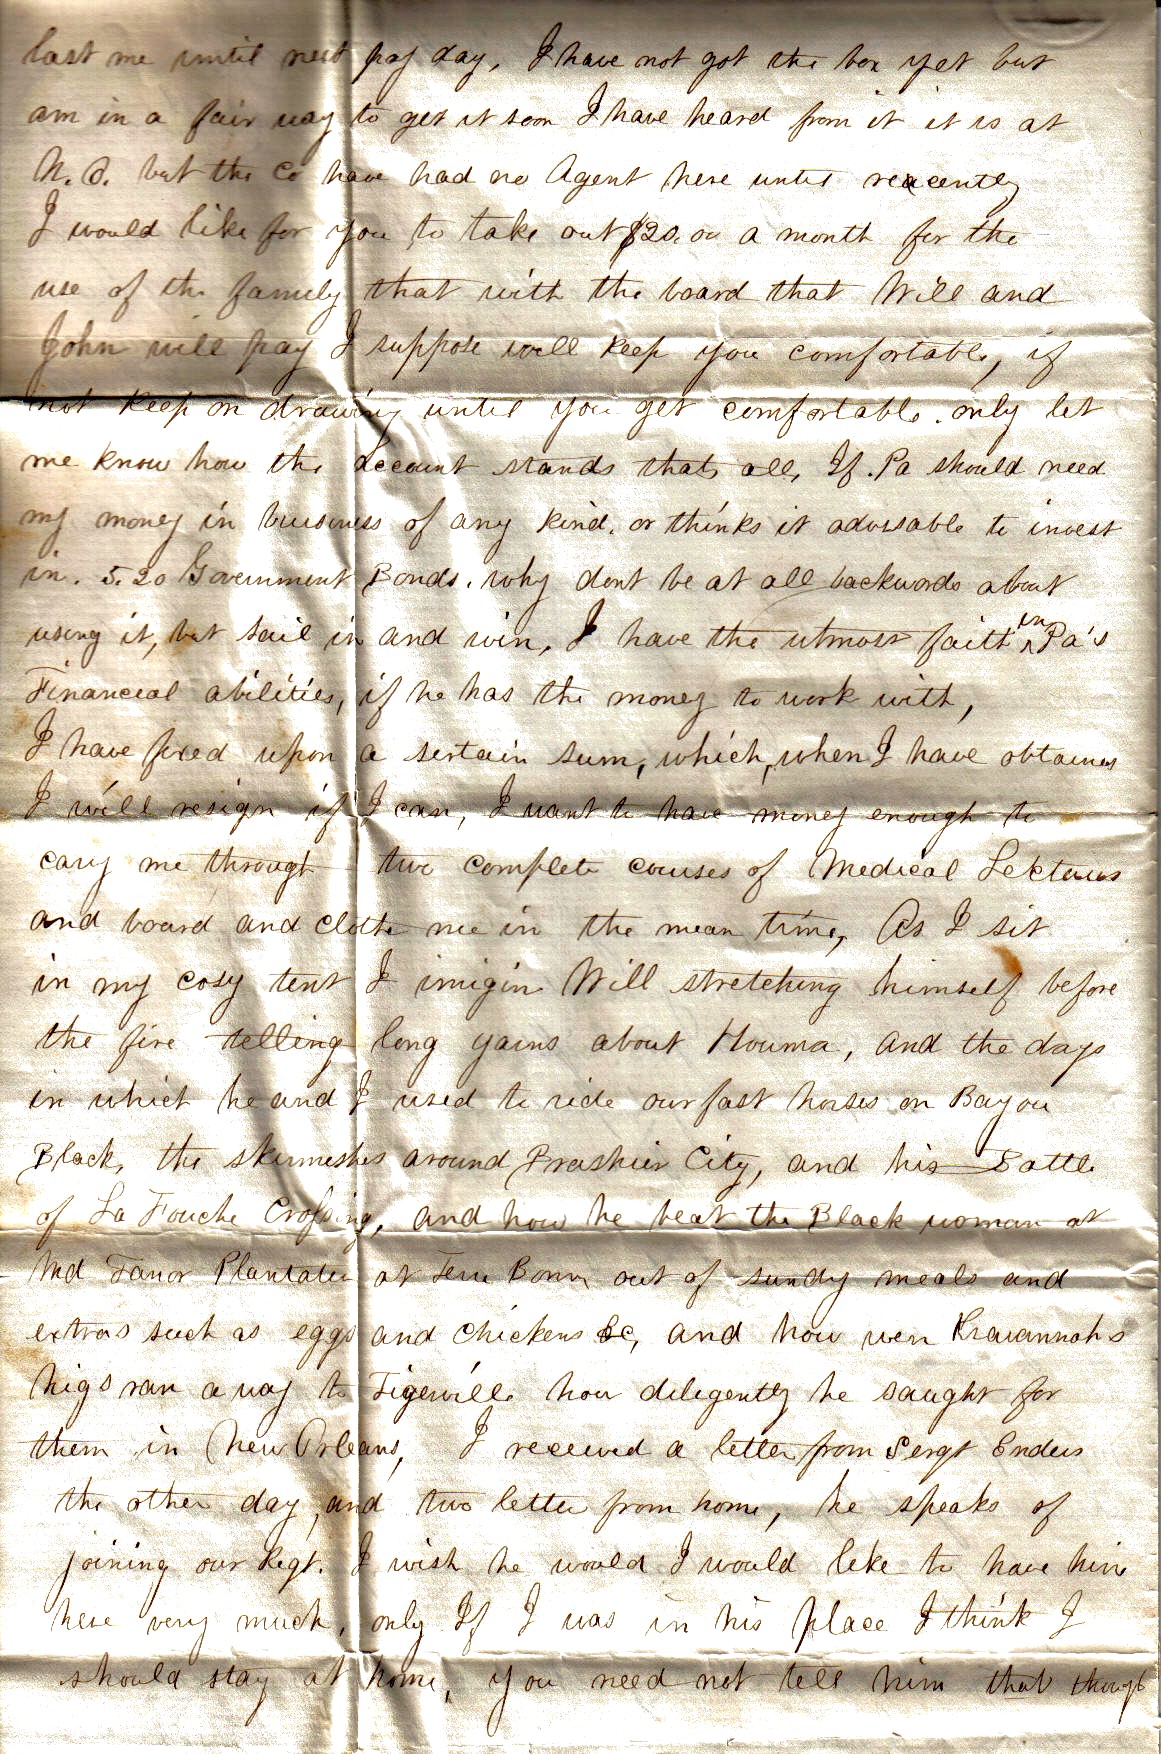 last me until next pay day, I have not got the box yet but
am in a fair way to get it soon I have heard from it it is at
N. O. but the Co have had no Agent here until reacently
I would like for you to take out $20.00 a month for the
use of the family that with the board that Will and
John will pay I suppose will keep you comfortable, if
not keep on drawing until you get comfortable. only let
me know how the account stands thats all, If. Pa should need
my money in buisiness of any kind. or thinks it advisable to invest
in. 5.20 Government Bonds. why dont be at all backwords about
using it, but sail in and win, I have the utmost faith in Pa's
Financial abilities, if he has the money to work with,
I have fixed upon a sertain sum, which, when I have obtained
I will resign if I can, I want to have money enough to
cary me through two complete couses of Medical Lectures
and board and clothe me in the mean time, As I sit
in my cosy tent I imigin Will stretching himself before
the fire telling long yarns about Houma, and the days
in which he and I used to ride our fast horses on Bayou
Black, the skirmeshes around Brashier City, and his Battle
of La Fouche Crossing, and how he beat the Black woman at
Plantation at Terre Bonne out of sundy meals and
extras such as eggs and chickens &c, and how wen Kravannahs
nigs ran a way to Tigerville how delegently he saught for
them in New Orleans, I received a letter from Sergt Enders
the other day, and two letter from home, he speaks of
joining our Regt. I wish he would I would like to have him
here very much, only If I was in his place I think I
should stay at home, you need not tell him that though